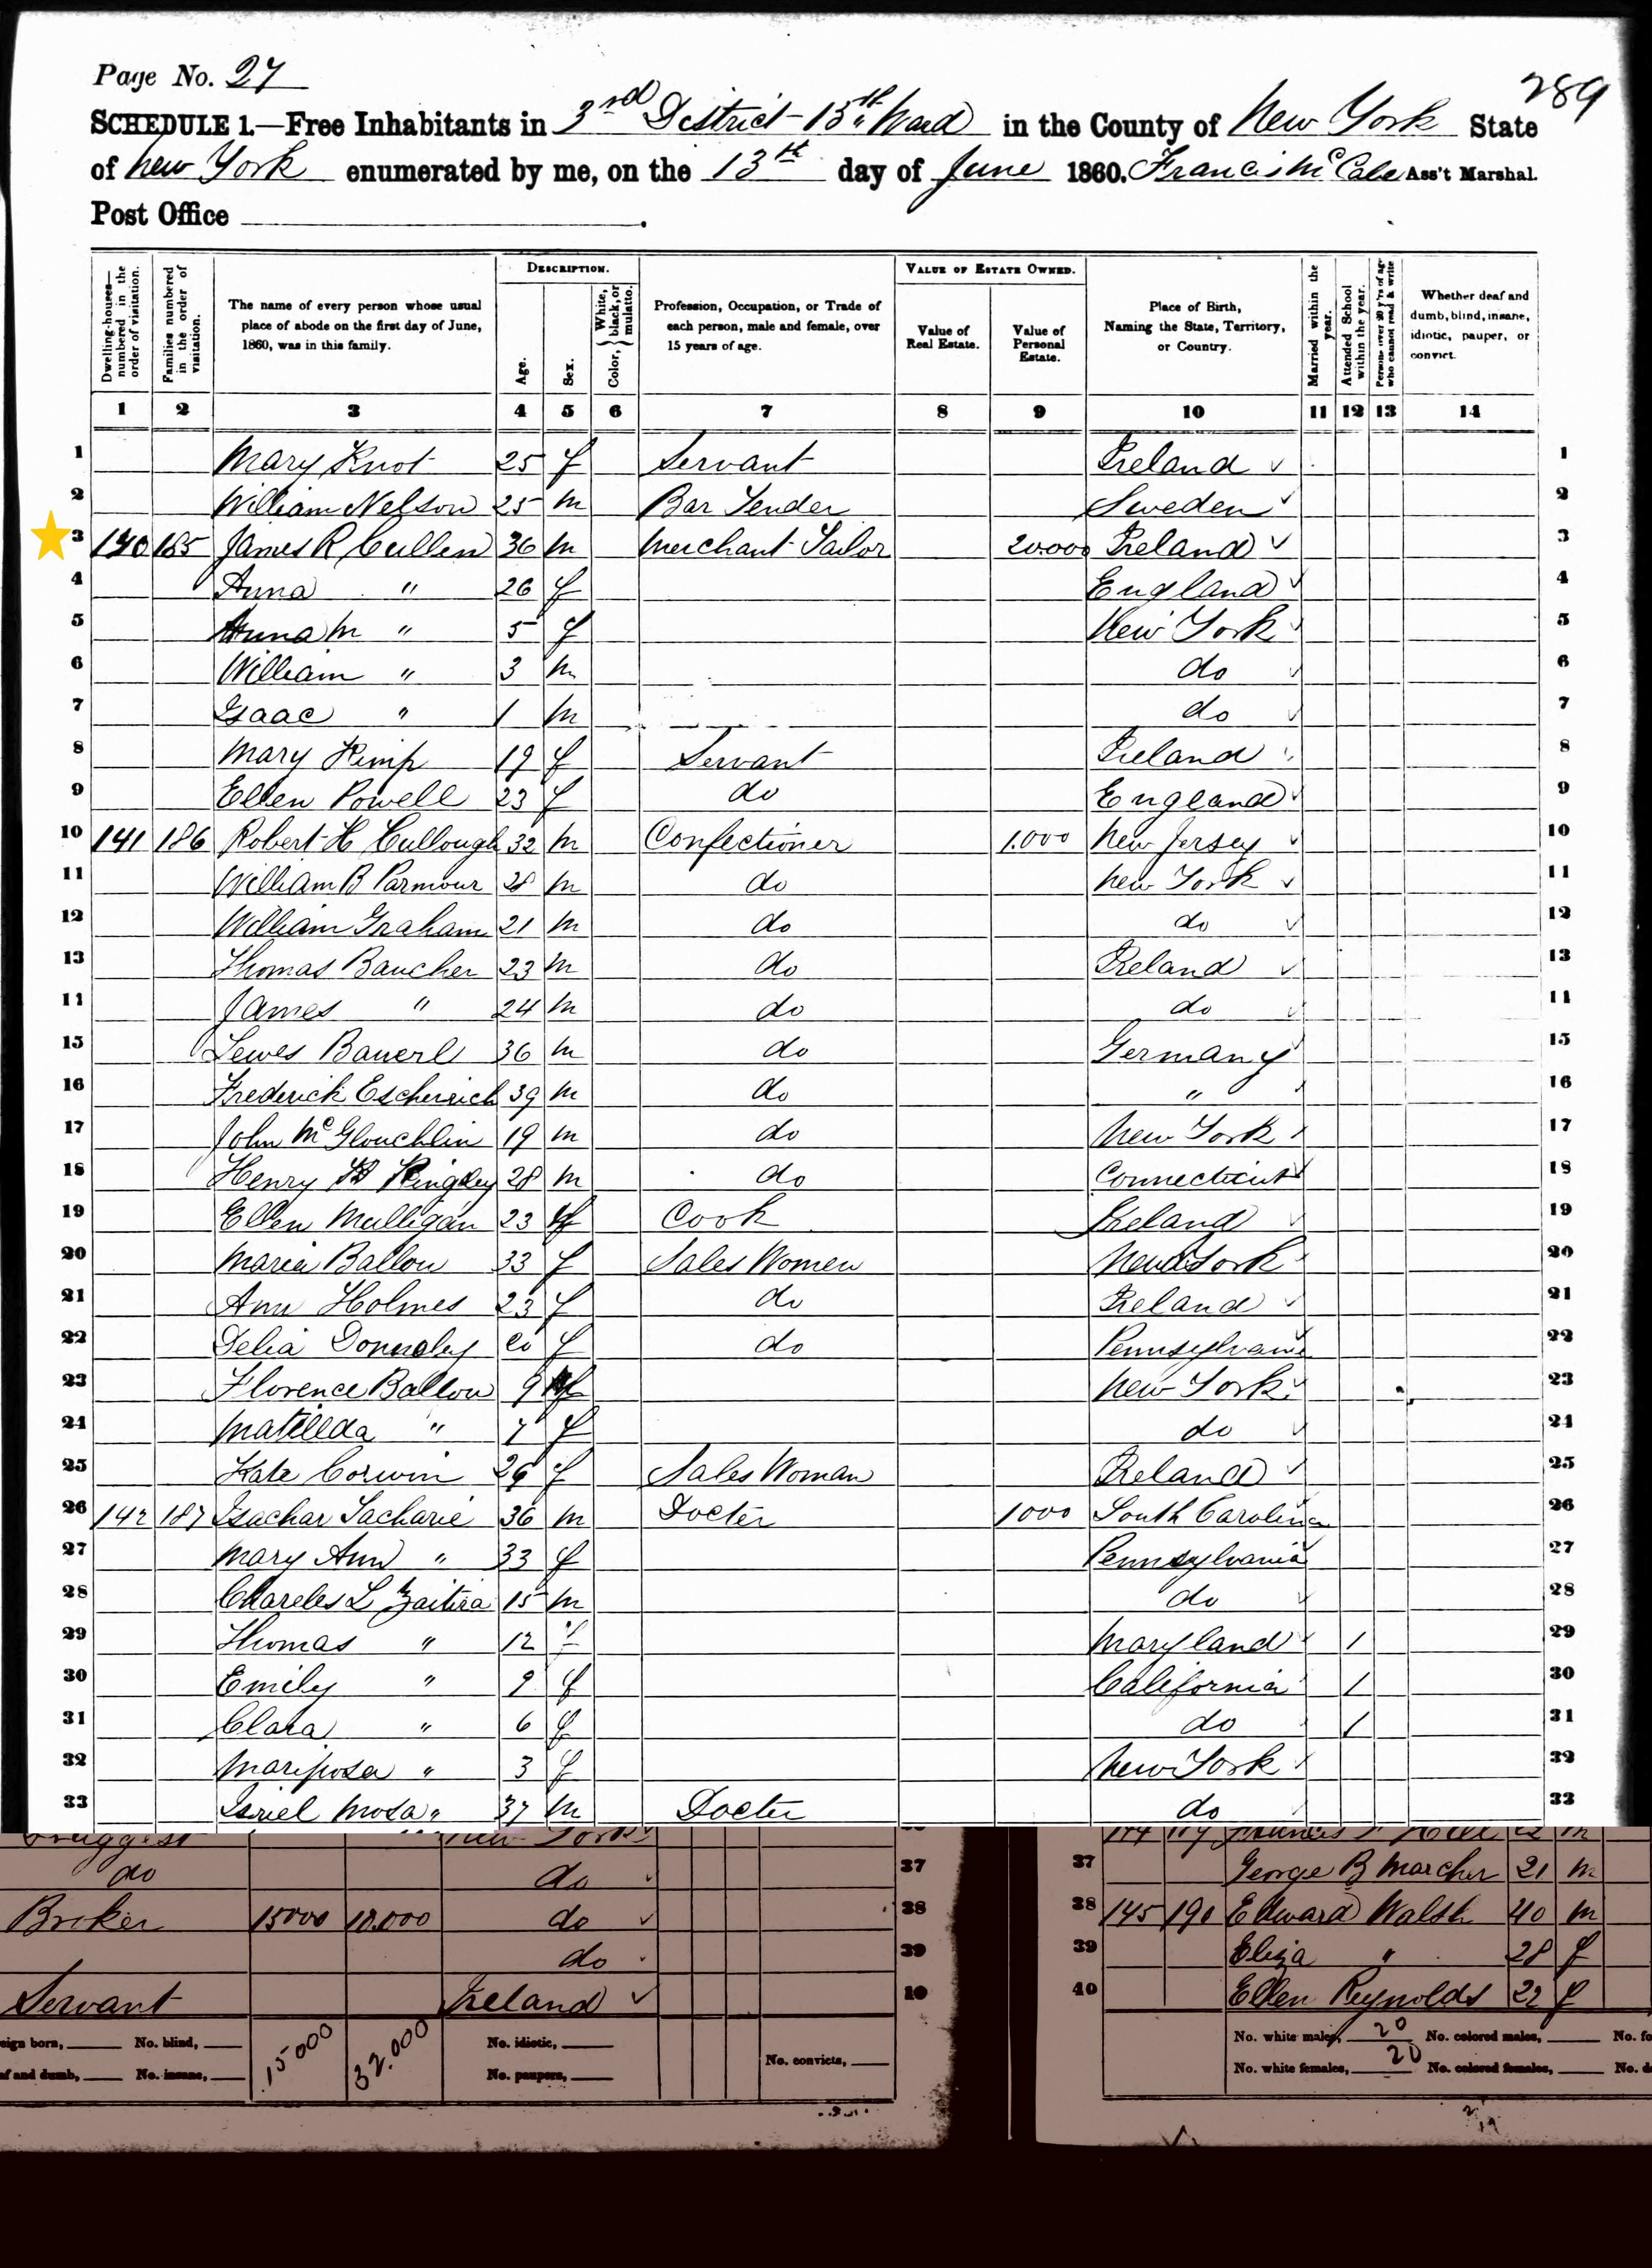 Page No. 27
289
SCHEDULE 1.—Free Inhabitants in 3rd District - 15th Ward in the County of New York State
of New York enumerated by me, on the 13th day of June 1860. Francis McCabe Ass't Marshal.
Post Office
Dwelling-houses—numbered in the order of visitation.
Families numbered in the order of visitation.
The name of every person whose usual place of abode on the first day of June, 1860, was in this family.
DESCRIPTION.
Age.
Sex.
Color, White, black, or mulatto.
Profession, Occupation, or Trade of each person, male and female, over 15 years of age.
VALUE OF ESTATE OWNED.
Value of Real Estate.
Value of Personal Estate.
Place of Birth, Naming the State, Territory, or Country.
Married within the year.
Attended School within the year.
Persons over 20 y'rs of age who cannot read & write
Whether deaf and dumb, blind, insane, idiotic, pauper, or convict.
1 2 3 4 5 6 7 8 9 10 11 12 13 14
1 Mary Knot 25 f Servant Ireland 1
2 William Nelson 25 m Bar Tender Sweden 2
3 140 185 James R Cullen 36 m Merchant Tailor 20.000 Ireland 3
4 Anna " 26 f England 4
5 Anna M " 5 f New York 5
6 William " 3 m do 6
7 Isaac " 1 m do 7
8 Mary Kimp 19 f Servant Ireland 8
9 Ellen Powell 23 f do England 9
10 141 186 Robert H Cullough 32 m Confectioner 1.000 New Jersey 10
11 William B Parmour 28 m do New York 11
12 William Graham 21 m do do 12
13 Thomas Baucher 23 m do Ireland 13
11 James " 24 m do do 11
15 Lewes Bauerl 36 m do Germany 15
16 Frederick Escherrich 39 m do " 16
17 John McGlouchlin 19 m do New York 17
18 Henry Kingsley 28 m do Connecticut 18
19 Ellen Mulligan 23 f Cook Ireland 19
20 Maria Ballou 33 f Sales Women New York 20
21 Ann Holmes 23 f do Ireland 21
22 Delia Donnoley 20 f do Pennsylvania 22
23 Florence Ballou 9 f New York 23
24 Matillda " 7 f do 24
25 Kate Corwin 26 f Sales Woman Ireland 25
26 142 187 Isachar Zacharie 36 m Docter 1000 South Carolina 26
27 Mary Ann " 33 f Pennsylvania 27
28 Chareles L 15 m do 28
29 Thomas " 12 f Maryland 1 29
30 Emily " 9 f California 1 30
31 Clara " 6 f do 1 31
32 Mariposa " 3 f New York 32
33 Isriel Mosa " 37 m Docter do 33
Druggest New York
do do 37
Broker 15000 10.000 do 38
do 39
Servant Ireland 40
eign born, No. blind, 15000 32.000 No. idiotic,
af and dumb, No. insane, No. paupers, No. convicts,
144 189
37 George B Marcher 21 m
38 145 190 Edward Walsh 40 m
39 Eliza " 28 f
40 Ellen Reynolds 22 f
No. white males, 20 No. colored males, No. fo
No. white females, 20 No. colored females, No. d